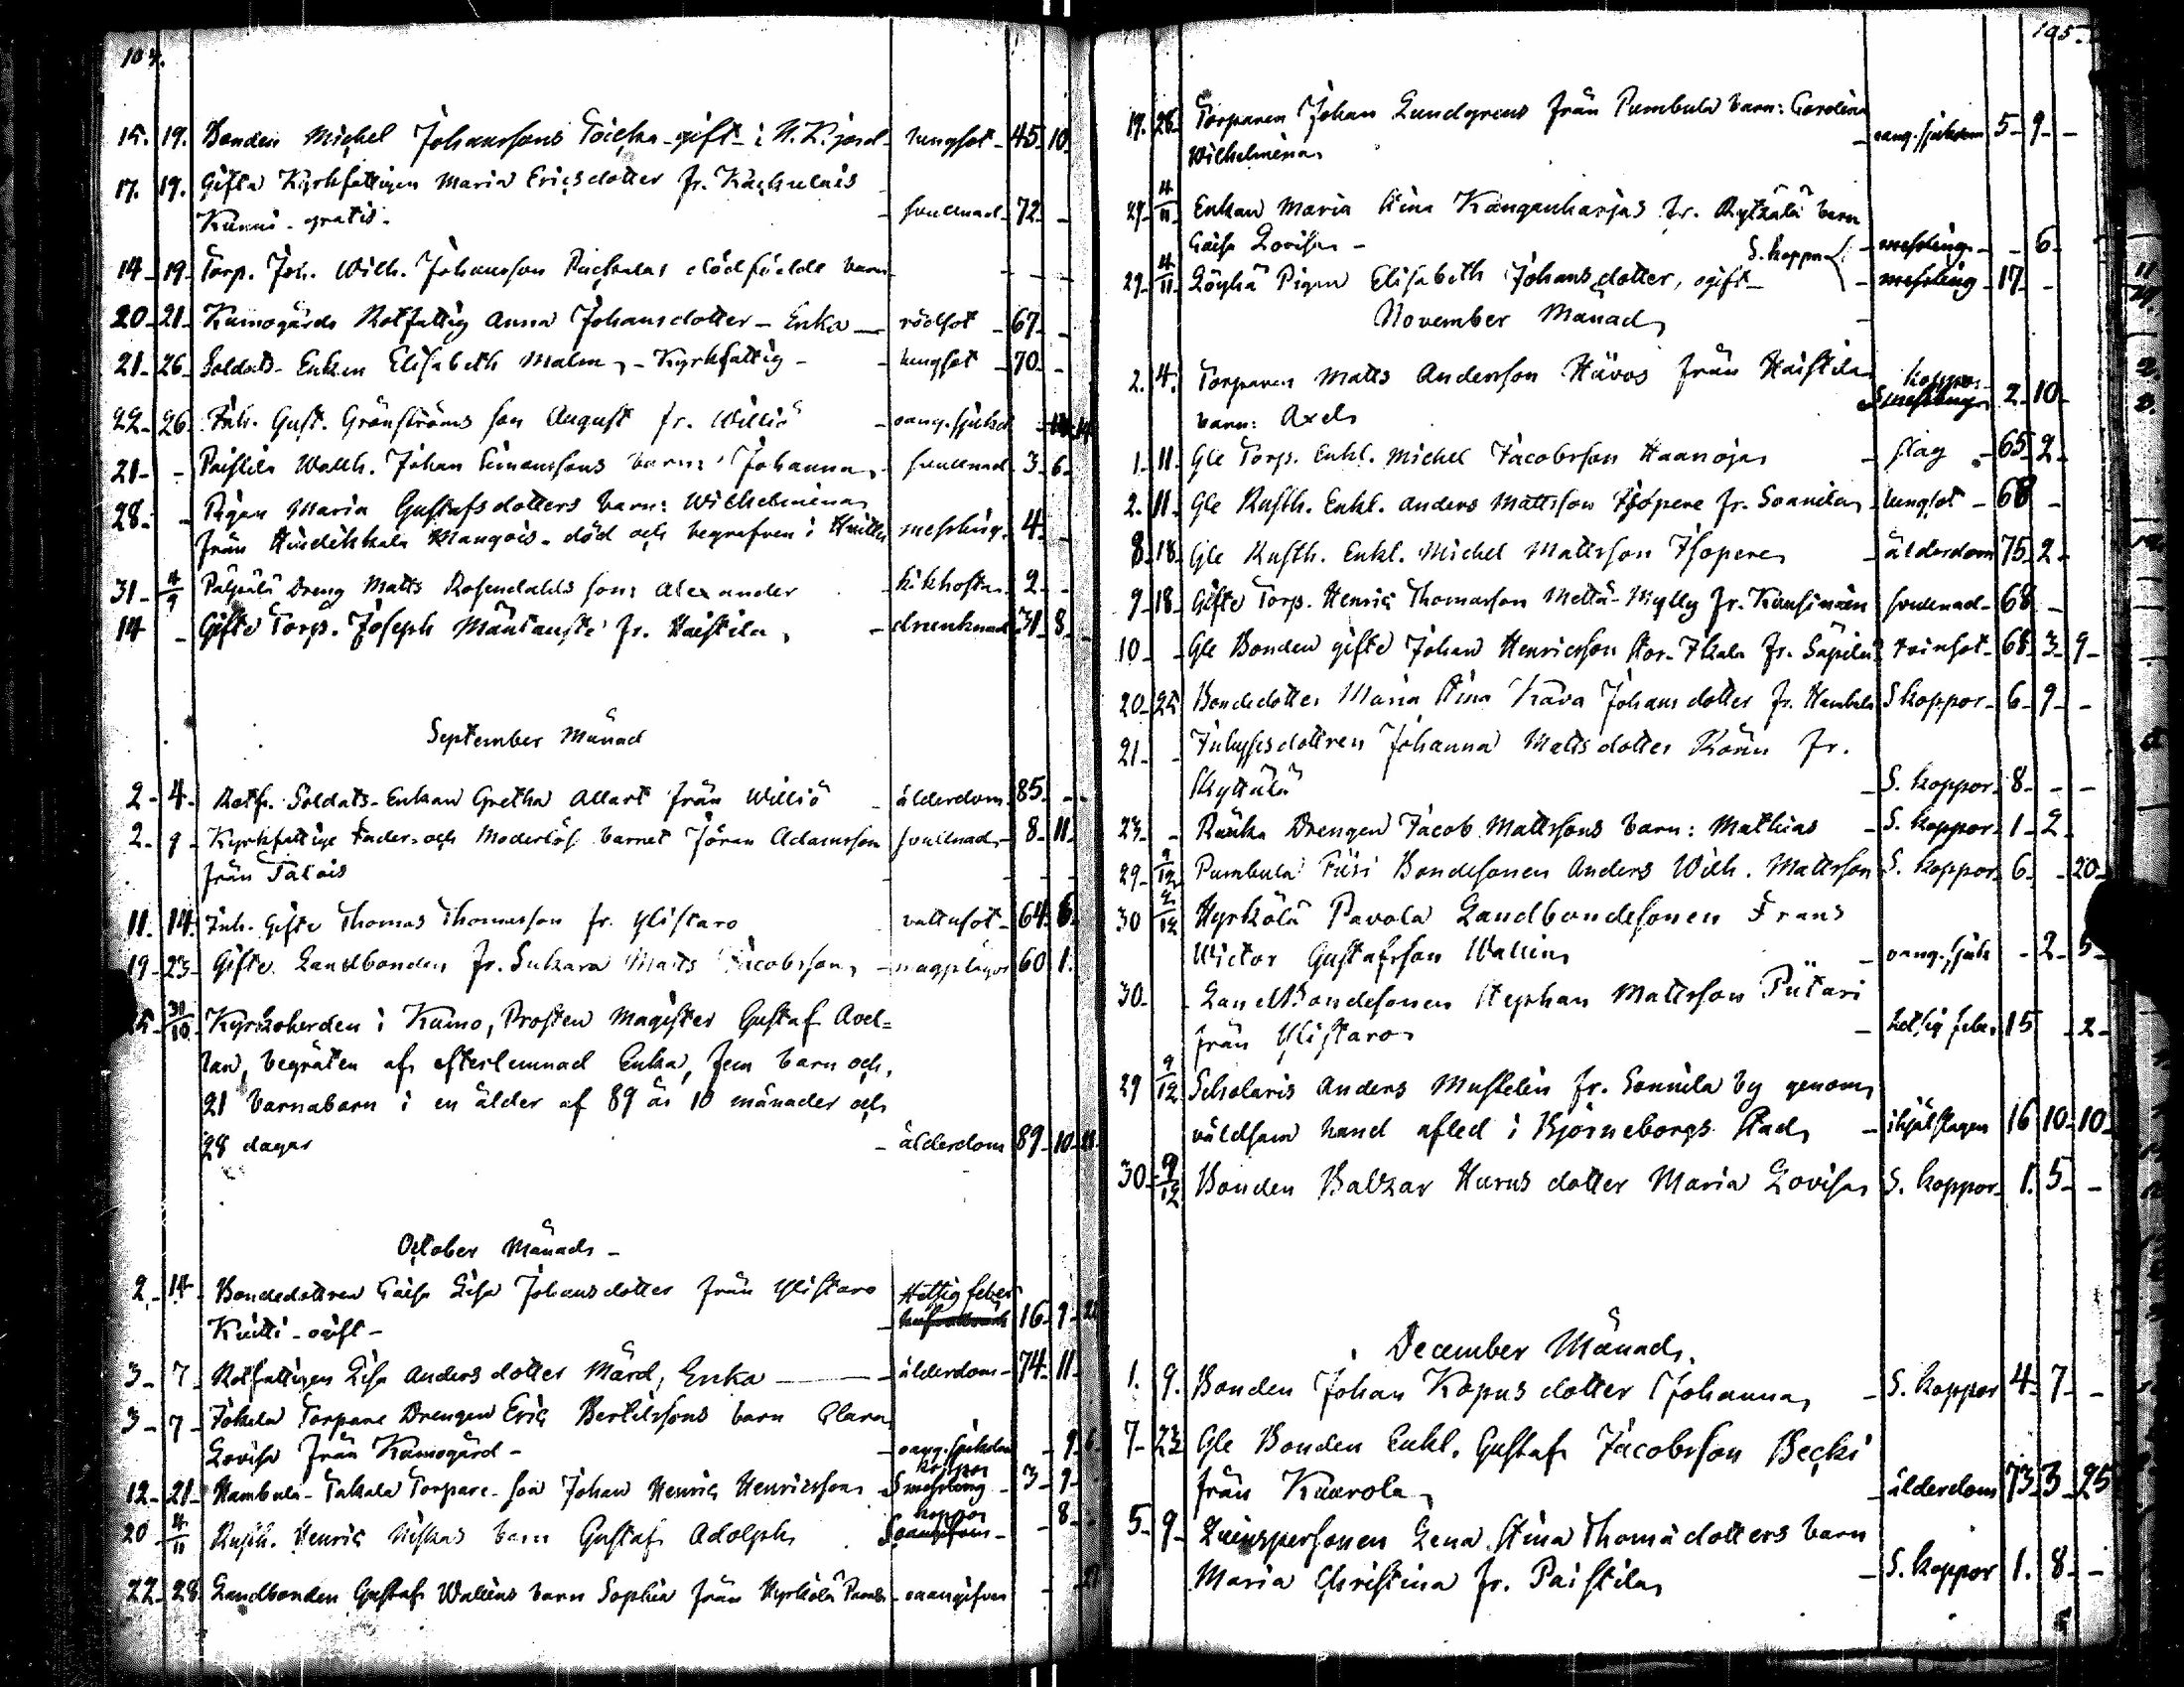 104.
15. 19. Bonden Michel Johanssons Toicka - gift - i N. K. jord - lungsot - 45 10
17. 19. Gifta Kyrkfattigen Maria Ericsdotter fr.
Kumi - gratis - svullnad - 72 -
14 - 19 - Torp. Joh. Wilh. Johansson dödfödde barn - - -
20 - 21 - Kumogårds Rotfattig Anna Johansdotter - Enka - rödsot - 67 -
21 - 26 - Soldats-Enkan Elisabeth Malm, - Kyrkfattig - lungsot - 70 -
22 - 26 - Inh. Gust. Grönströms son August fr. Williö - oang. sjukd 14
21 - - Paistila Wallb. Johan Simonssons barn: Johanna - svullnad 3 - 6 -
28 - - Pigan Maria Gustafsdotters barn: Wilhelmina
från Mangois - död och begrafven i - messling - 4 -
31 - 4/9 Pälpälä Dreng Matts Rosendahls son: Alexander - kikhosta - 2 -
14 - Gifte Torp. Joseph Mäntauste fr. Haistila - drunknad 31 - 8
September Månad
2 - 4 - Rotf. Soldats-Enkan Gretha Allart från Williö - ålderdom - 85 -
2 - 9 - Kyrkfattige Fader- och Moderlös barnet Jöran Adamsson svullnad - 8 - 11 -
från Talois
11. 14. Inh. Gifte Thomas Thomasson fr. Ylistaro vattusot - 64 - 6
19 - 23 - Gifte Landbonden fr. Sukara Matts Jacobsson - magplågor 60 1.
25 - 31/10 Kyrkoherden i Kumo, Prosten Magister Gustaf Avel=
lan, begråten af efterlemnad Enka, fem barn och
21 barnabarn i en ålder af 89 år 10 månader och
28 dagar - ålderdom 89 - 10 - 28
October Månad -
2 - 14 - Bondedottren Caisa Lisa Johansdotter från Ylistaro Hetsig feber
Knitti - ogift - 16 - 9 - 22
3 - 7 - Rotfattigen Lisa Andersdotter Mård, Enka - ålderdom - 74 - 11 -
3 - 7 - Jokela Torpare Drengen Eric Bertilssons barn Clara
Lovisa från Kumogård - oang. sjukdom - 9 - 6
12 - 21 - Hambula - Takala Torpare-son Johan Henric Henricsson - S koppor messling - 3 - 9 -
20 - 4/11 Rusth. Henric Niskas barn Gustaf Adolph - S koppor - 8 -
22 - 28 Landbonden Gustaf Wallins barn Sophia från Hyrkölä - oangifven - 21
105.
19. 28 - Torparen Johan Lundgrens från Pumbula barn: Carolina
Wilhelmina - oang. sjukdom 5 - 9 - -
29 - 4/11 Enkan Maria Stina Kanganharjas fr. barn
Caisa Lovisa - S. koppor - messling - - 6 -
29 - 4/11 Löyhä Pigan Elisabeth Johansdotter, ogift - messling - 17 - -
November Månad
2. 4. Torparen Matts Andersson Hävos från Haistila
barn: Axel S koppor messling 2 - 10 -
1 - 11 - Gle Torp. Enkl. Michel Jacobsson Haanoja - slag - 65 2 -
2 - 11 - Gle Rusth. Enkl. Anders Mattsson Isopere fr. Sonnila - lungsot - 68 -
8 - 18 - Gle Rusth. Enkl. Michel Mattsson Isopere - ålderdom 75 - 2 -
9 - 18 - Gifte Torp. Henric Thomasson Mettä-Mylly fr. svullnad - 68 -
10 - - Gle Bonden gifte Johan Henricsson Stor-Ikala fr. Säpilä - 68 - 3 - 9 -
20 - 25 Bondedotter Maria Stina Kava Johansdotter fr. Hambula S koppor - 6 - 9 - -
21 - - Inhysesdottren Johanna Mattsdotter fr.
- S. koppor - 8 - - -
23 - - Ränka Drengen Jacob Mattssons barn: Mathias - S. koppor - 1 - 2 -
29 - 9/12 Pumbula Fiiri Bondesonen Anders Wilh. Mattsson S. koppor - 6 - - 20 -
30 9/12 Hyrkölä Pavola Landbondesonen Frans
Wictor Gustafsson Wallin - oang. sjuk - 2 - 5 -
30 - - Landbondesonen Stephan Mattsson Pietari
från Ylistaro - hetsig feber 15 - 2 -
29 9/12 Scholaris Anders Mustelin fr. Sonnila by genom
våldsam hand afled i Björneborgs stad - ihjälslagen 16 10 - 10 -
30 - 9/12 Bonden Baltzar Hurus dotter Maria Lovisa S. koppor - 1. 5 - -
December Månad.
1. 9. Bonden Johan Kopus dotter Johanna - S. koppor 4 - 7 - -
7 - 23 Gle Bonden Enkl. Gustaf Jacobsson Becki
från Kaarola - ålderdom 73 - 3 - 25
5 - 9 - Qvinspersonen Lena Stina Thomædotters barn
Maria Christina fr. Paistila - S. koppor 1. 8 - -